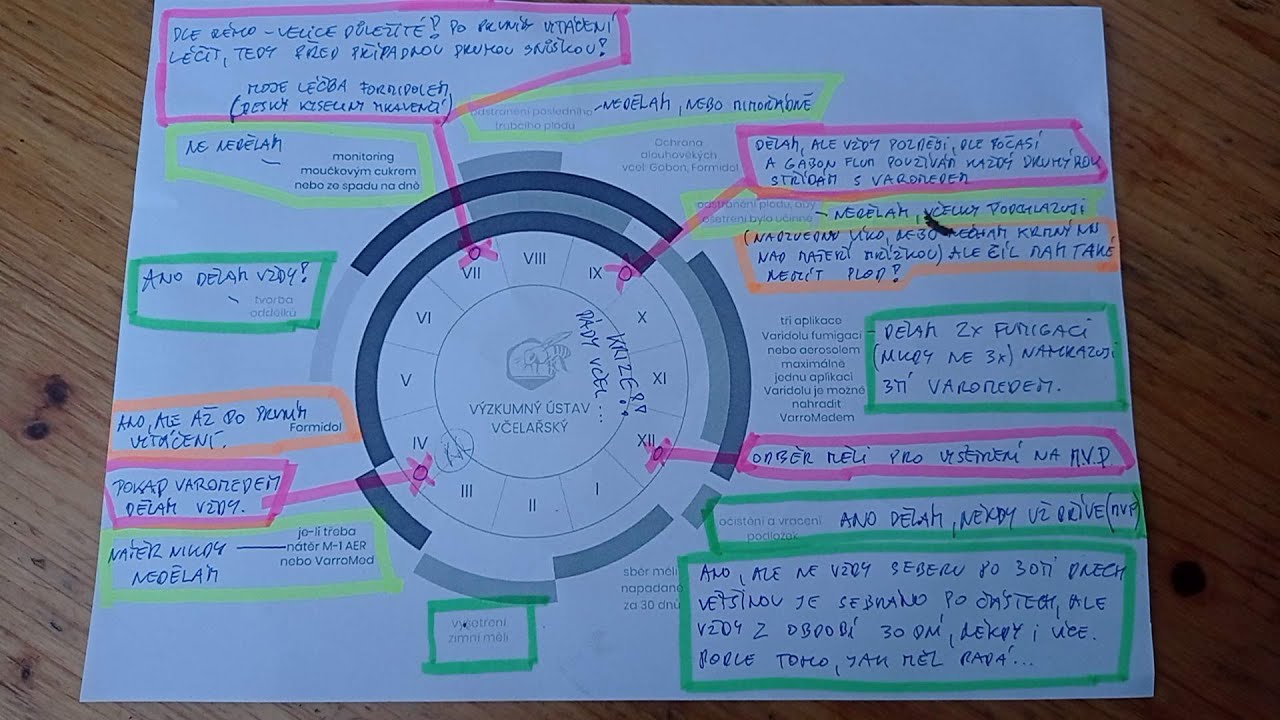 DLE RÉMO - VELICE DŮLEŽITÉ! PO PRVNÍM VYTÁČENÍ
LÉČIT, TEDY PŘED PŘÍPADNOU DRUHOU SNŮŠKOU!
MOJE LÉČBA FORMIDOLEM
(DESKY KYSELINY MRAVENČÍ)
odstranění posledního
trubčího plodu
NEDĚLÁM, NEBO MIMOŘÁDNĚ
NE NEDĚLÁM
monitoring
moučkovým cukrem
nebo ze spadu na dně
Ochrana
dlouhověkých
včel: Gabon, Formidol
DĚLÁM, ALE VŽDY POZDĚJI, DLE POČASÍ
A GABON FLUM POUŽÍVÁM KAŽDÝ DRUHÝ ROK
STŘÍDÁM S VAROMEDEM
odstranění plodu, aby
ošetření bylo účinné
- NEDĚLÁM, VČELKY PODCHLAZUJI
(NADZVEDNU VÍKO, NEBO NECHÁM KRMNÝ NN
NAD MATEŘÍ MŘÍŽKOU) ALE ČÍL MÁM TAKÉ
NEMÍT PLOD!
ANO DĚLÁM VŽDY!
tvorba
oddělků
tři aplikace
Varidolu fumigací
nebo aerosolem
maximálně
jednu aplikaci
Varidolu je možné
nahradit
VarroMedem
DĚLÁM 2X FUMIGACI
(NIKDY NE 3X) NAHRAZUJI
3TÍ VAROMEDEM.
VII
VIII
IX
VI
X
V
XI
IV
XII
III
II
I
KRIZE!!
PÁDY VČEL...
VÝZKUMNÝ ÚSTAV
VČELAŘSKÝ
ANO, ALE AŽ PO PRVNÍM
VYTÁČENÍ.
Formidol
POKAD VAROMEDEM
DĚLÁM VŽDY.
NÁTĚR NIKDY
NEDĚLÁM
je-li třeba
nátěr M-1 AER
nebo VarroMed
ODBĚR MĚLI PRO VYŠETŘENÍ NA M.V.P.
očistění a vracení
podložek
ANO DĚLÁM, NĚKDY UŽ DŘÍVE (MVP)
sběr měli
napadané
za 30 dnů
ANO, ALE NE VŽDY SEBERU PO 30TI DNECH
VĚTŠINOU JE SEBRÁNO PO ČÁSTECH, ALE
VŽDY Z OBDOBÍ 30 DNÍ, NĚKDY I VÍCE.
PODLE TOHO, JAK MĚL PADÁ...
vyšetření
zimní měli